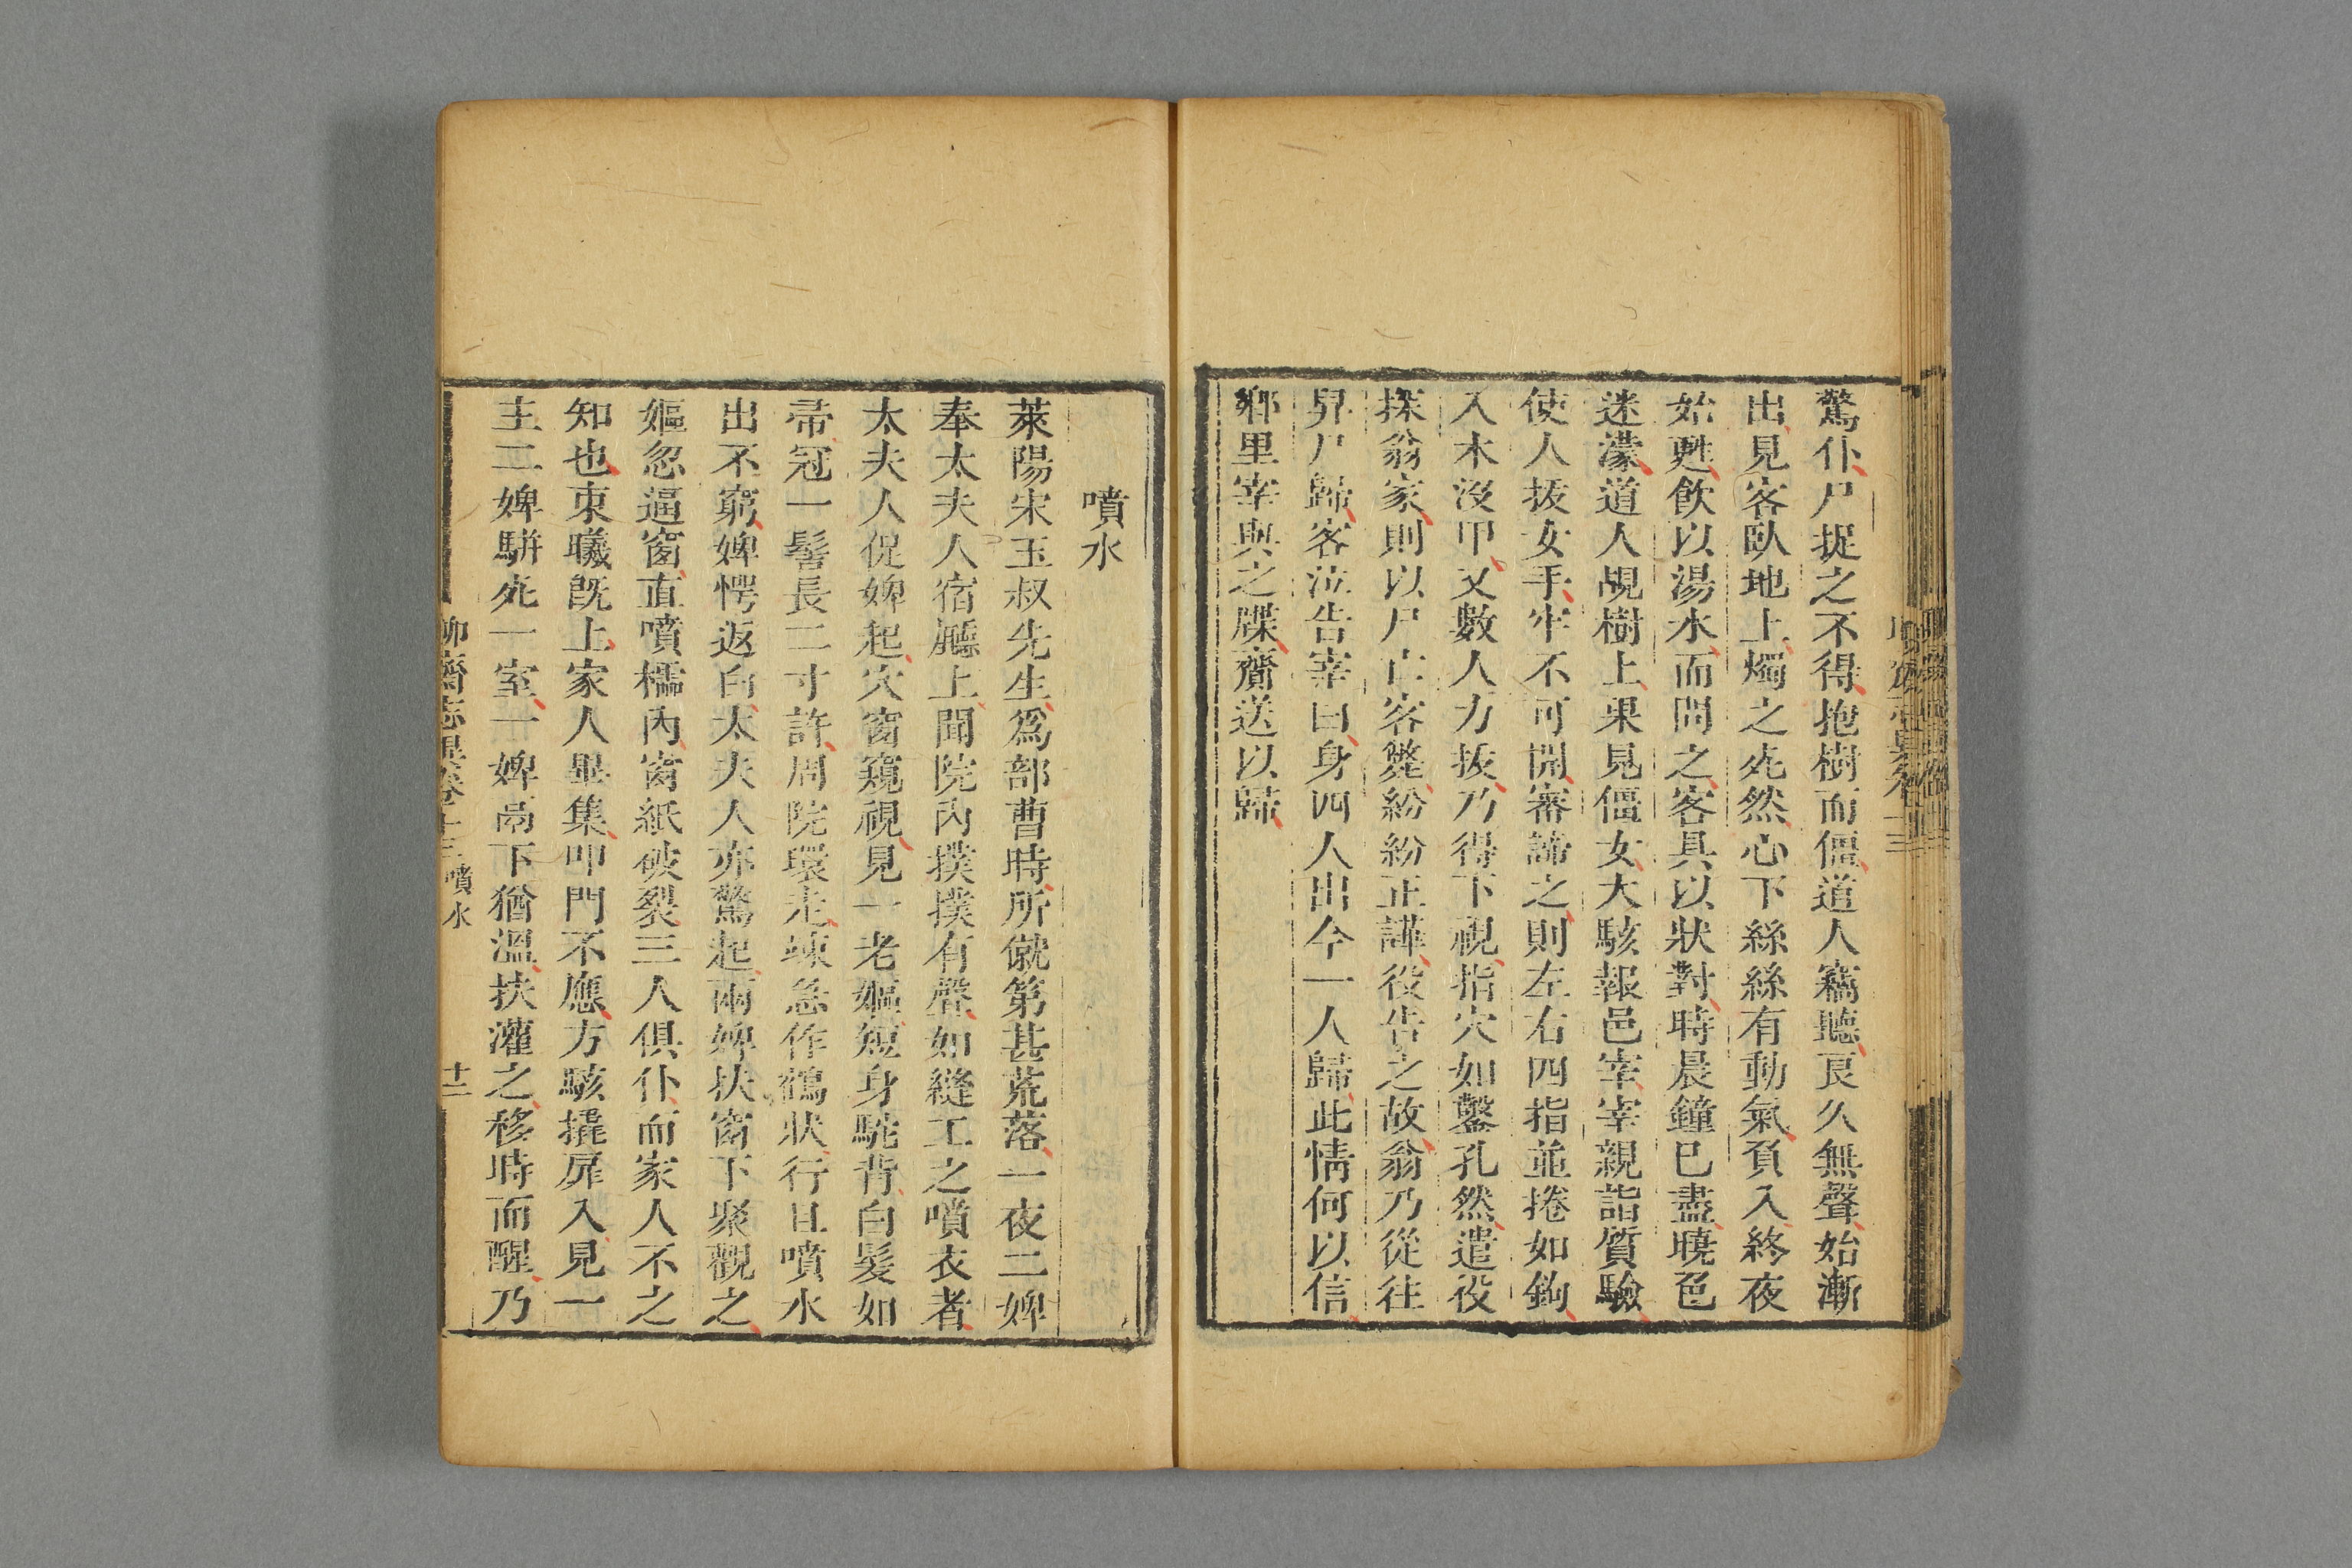 驚仆尸捉之不得抱樹而僵道人竊聽良久無聲始漸
出見客臥地上燭之死然心下絲絲有動氣負入終夜
始甦飲以湯水而問之客具以狀對時晨鐘已盡曉色
迷濛道人覘樹上果見僵女大駭報邑宰宰親詣質驗
使人拔女手牢不可開審諦之則左右四指並捲如鉤
入木沒甲又數人力拔乃得下視指穴如鑿孔然遣役
探翁家則以尸亡客斃紛紛正譁役告之故翁乃從往
舁尸歸客泣告宰曰身四人出今一人歸此情何以信
鄉里宰與之牒齎送以歸
噴水
萊陽宋玉叔先生爲部曹時所僦第甚荒落一夜二婢
奉太夫人宿廳上聞院內撲撲有聲如縫工之噴衣者
太夫人促婢起穴窗窺視見一老嫗短身駝背白髮如
帚冠一髻長二寸許周院環走竦急作鶴狀行且噴水
出不窮婢愕返白太夫人亦驚起兩婢扶窗下聚觀之
嫗忽逼窗直噴櫺內窗紙破裂三人俱仆而家人不之
知也東曦既上家人畢集叩門不應方駭撬扉入見一
主二婢駢死一室一婢鬲下猶溫扶灌之移時而醒乃
聊齋志異卷十三 噴水 十二